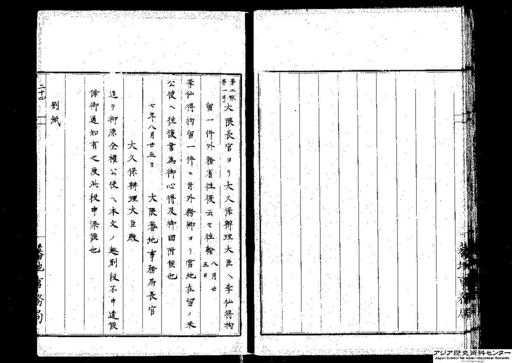 第二號
第一號
大隈長官ヨリ大久保辨理大臣ヘ李仙得拘
留一件外務省往復云々往翰 八月廿五日
李仙得拘留一件ニ付外務卿ヨリ當地在留ノ米
公使ヘ往復書為御心得及御回附候也
七年八月廿五日 大隈蕃地事務局長官
大久保辨理大臣殿
追テ御原全權公使ヘ本文ノ趣別段不申遣候
條御通知有之度此段申添候也
別紙
二十四
蕃地事務局
蕃地事務局
アジア歴史資料センター
Japan Center for Asian Historical Records